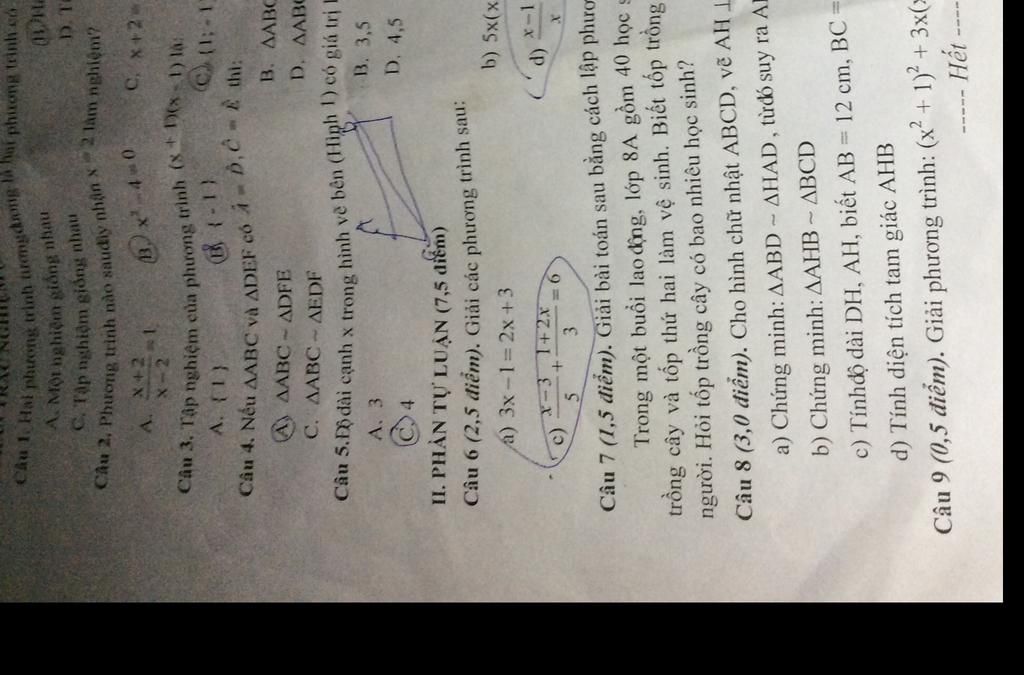 Câu 1. Hai phương trình tương đương là hai phương trình có
A. Một nghiệm giống nhau
C. Tập nghiệm giống nhau
Câu 2. Phương trình nào sau đây nhận x = 2 làm nghiệm?
A. (x+2)/(x−2) = 1 B x² − 4 = 0 C. x + 2 =
Câu 3. Tập nghiệm của phương trình (x + 1)(x − 1) là:
A. { 1 } B { - 1 } C. { 1; - 1
Câu 4. Nếu ΔABC và ΔDEF có Â = D̂, Ĉ = Ê thì:
A) ΔABC ~ ΔDFE B. ΔABC
C. ΔABC ~ ΔEDF D. ΔABC
Câu 5. Độ dài cạnh x trong hình vẽ bên (Hình 1) có giá trị
A. 3 B. 3,5
C. 4 D. 4,5
II. PHẦN TỰ LUẬN (7,5 điểm)
Câu 6 (2,5 điểm). Giải các phương trình sau:
a) 3x − 1 = 2x + 3 b) 5x(x
c) (x−3)/5 + (1+2x)/3 = 6 d) (x−1)/x
Câu 7 (1,5 điểm). Giải bài toán sau bằng cách lập phươ
Trong một buổi lao động, lớp 8A gồm 40 học s
trồng cây và tốp thứ hai làm vệ sinh. Biết tốp trồng
người. Hỏi tốp trồng cây có bao nhiêu học sinh?
Câu 8 (3,0 điểm). Cho hình chữ nhật ABCD, vẽ AH ⊥
a) Chứng minh: ΔABD ~ ΔHAD , từ đó suy ra A
b) Chứng minh: ΔAHB ~ ΔBCD
c) Tính độ dài DH, AH, biết AB = 12 cm, BC =
d) Tính diện tích tam giác AHB
Câu 9 (0,5 điểm). Giải phương trình: (x² + 1)² + 3x(x
----- Hết ----